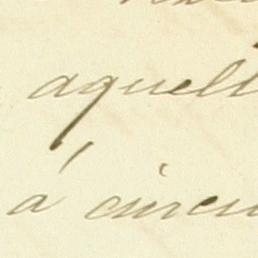 aquell
á circu